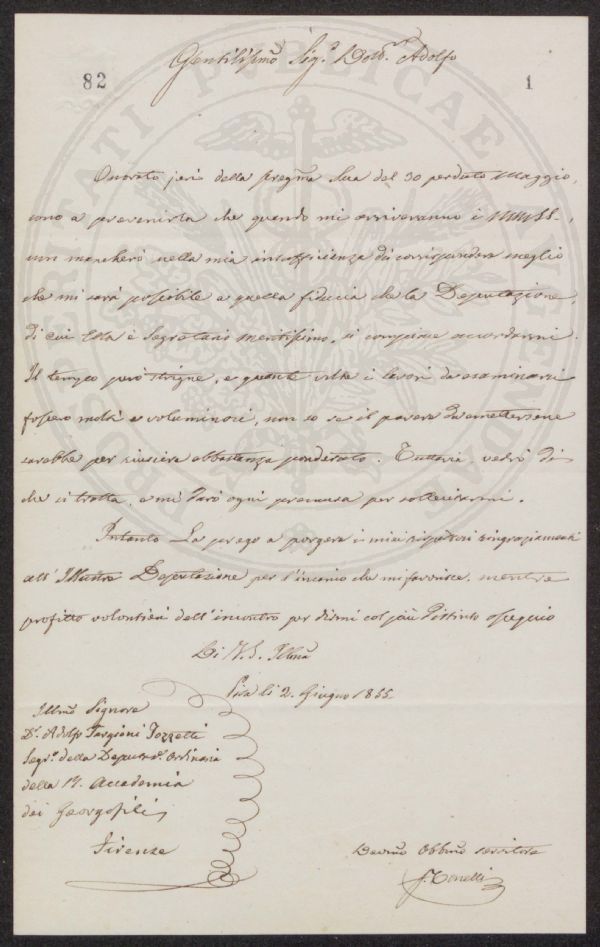 Gentilissmo Sig.r Dott.r Adolfo
82
1
Onorato jeri della pregma Sua del 30 perduto Maggio,
sono a prevenirla che quando mi arriveranno i MMSS.,
non mancherò nella mia insufficienza di corrispondere meglio
che mi sarà possibile a quella fiducia che la Deputazione,
di cui Ella è Segretario meritissimo, si compiace accordarmi.
Il tempo però stringe, e quante volte i lavori da esaminarsi
fossero molti e voluminosi, non so se il parere da emettersene
sarebbe per riuscire abbastanza ponderato. Tuttavia vedrò di
che si tratta, e mi darò ogni premura per sollecitarmi.
Intanto La prego a porgere i miei rispettosi ringraziamenti
all' Illustre Deputazione per l'incarico che mi favorisce, mentre
profitto volontieri dell'incontro per dirmi col più distinto ossequio
Di V.S. Illma
Pisa li 2. Giugno 1855
Illmo Signore
Dr. Adolfo Targioni Tozzetti
Segr.o della Deputaz.e Ordinaria
della R. Accademia
dei Georgofili
Firenze
Devmo Obbmo servitore
PROSPERITATI PUBLICAE AUGENDAE